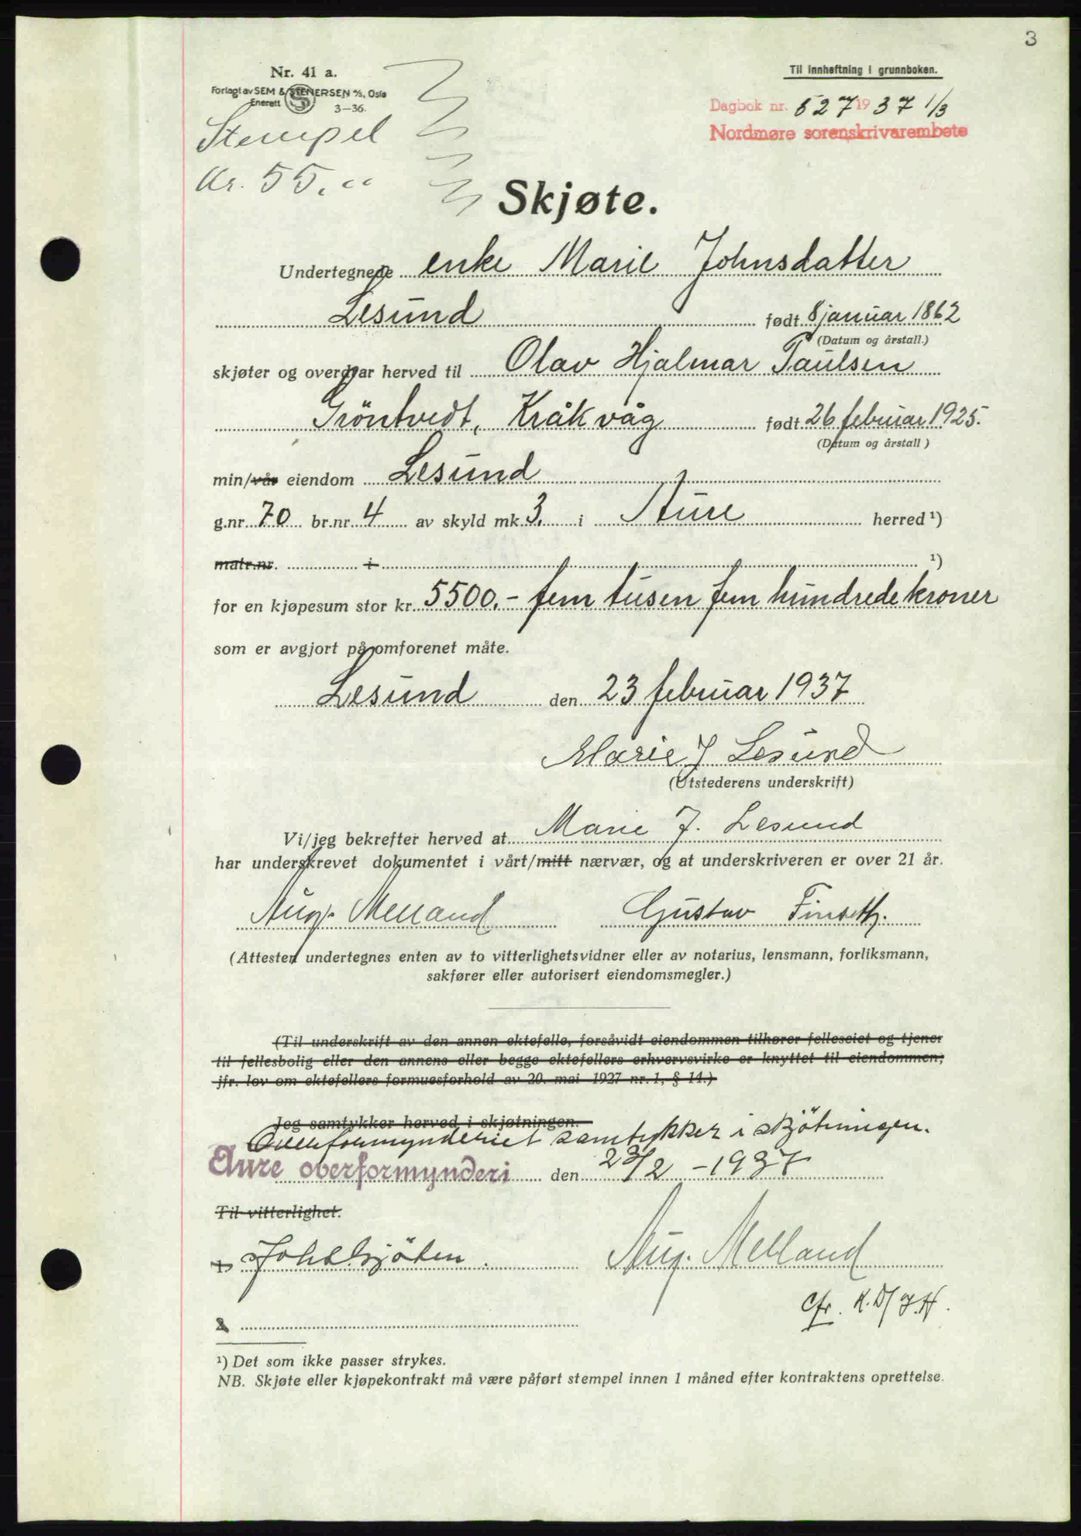 3
Nr. 41 a.
Forlagt av SEM & STENERSEN A/S, Oslo
Enerett
3—36.
Til innheftning i grunnboken.
Dagbok nr. 527 1937 1/3
Nordmøre sorenskrivarembete
Stempel
Kr. 55.00
Skjøte.
Undertegnede enke Marie Johnsdatter
Lesund født 8 januar 1862
(Datum og årstall.)
skjøter og overdrar herved til Olav Hjalmar Paulsen
Gröntvedt, Kråkvåg født 26 februar 1925.
(Datum og årstall)
min/vår eiendom Lesund
g.nr. 70 br.nr. 4 av skyld mk. 3. i Aure herred ¹)
matr.nr. i ¹)
for en kjøpesum stor kr. 5500.- fem tusen fem hundrede kroner
som er avgjort på omforenet måte.
Lesund den 23 februar 1937
Marie J Lesund
(Utstederens underskrift)
Vi/jeg bekrefter herved at Marie J. Lesund
har underskrevet dokumentet i vårt/mitt nærvær, og at underskriveren er over 21 år.
Aug. Melland Gustav Finseth.
(Attesten undertegnes enten av to vitterlighetsvidner eller av notarius, lensmann, forliksmann,
sakfører eller autorisert eiendomsmegler.)
(Til underskrift av den annen ektefelle, forsåvidt eiendommen tilhører felleseiet og tjener
til fellesbolig eller den annens eller begge ektefellers erhvervsvirke er knyttet til eiendommen,
jfr. lov om ektefellers formuesforhold av 20. mai 1927 nr. 1, § 14.)
Jeg samtykker herved i skjøtningen.
Overformynderiet samtykker i skjötningen.
Aure overformynderi den 23/2 - 1937
Til vitterlighet:
1. Aug. Melland
cfr. K.D/J.H.
2.
¹) Det som ikke passer strykes.
NB. Skjøte eller kjøpekontrakt må være påført stempel innen 1 måned efter kontraktens oprettelse.